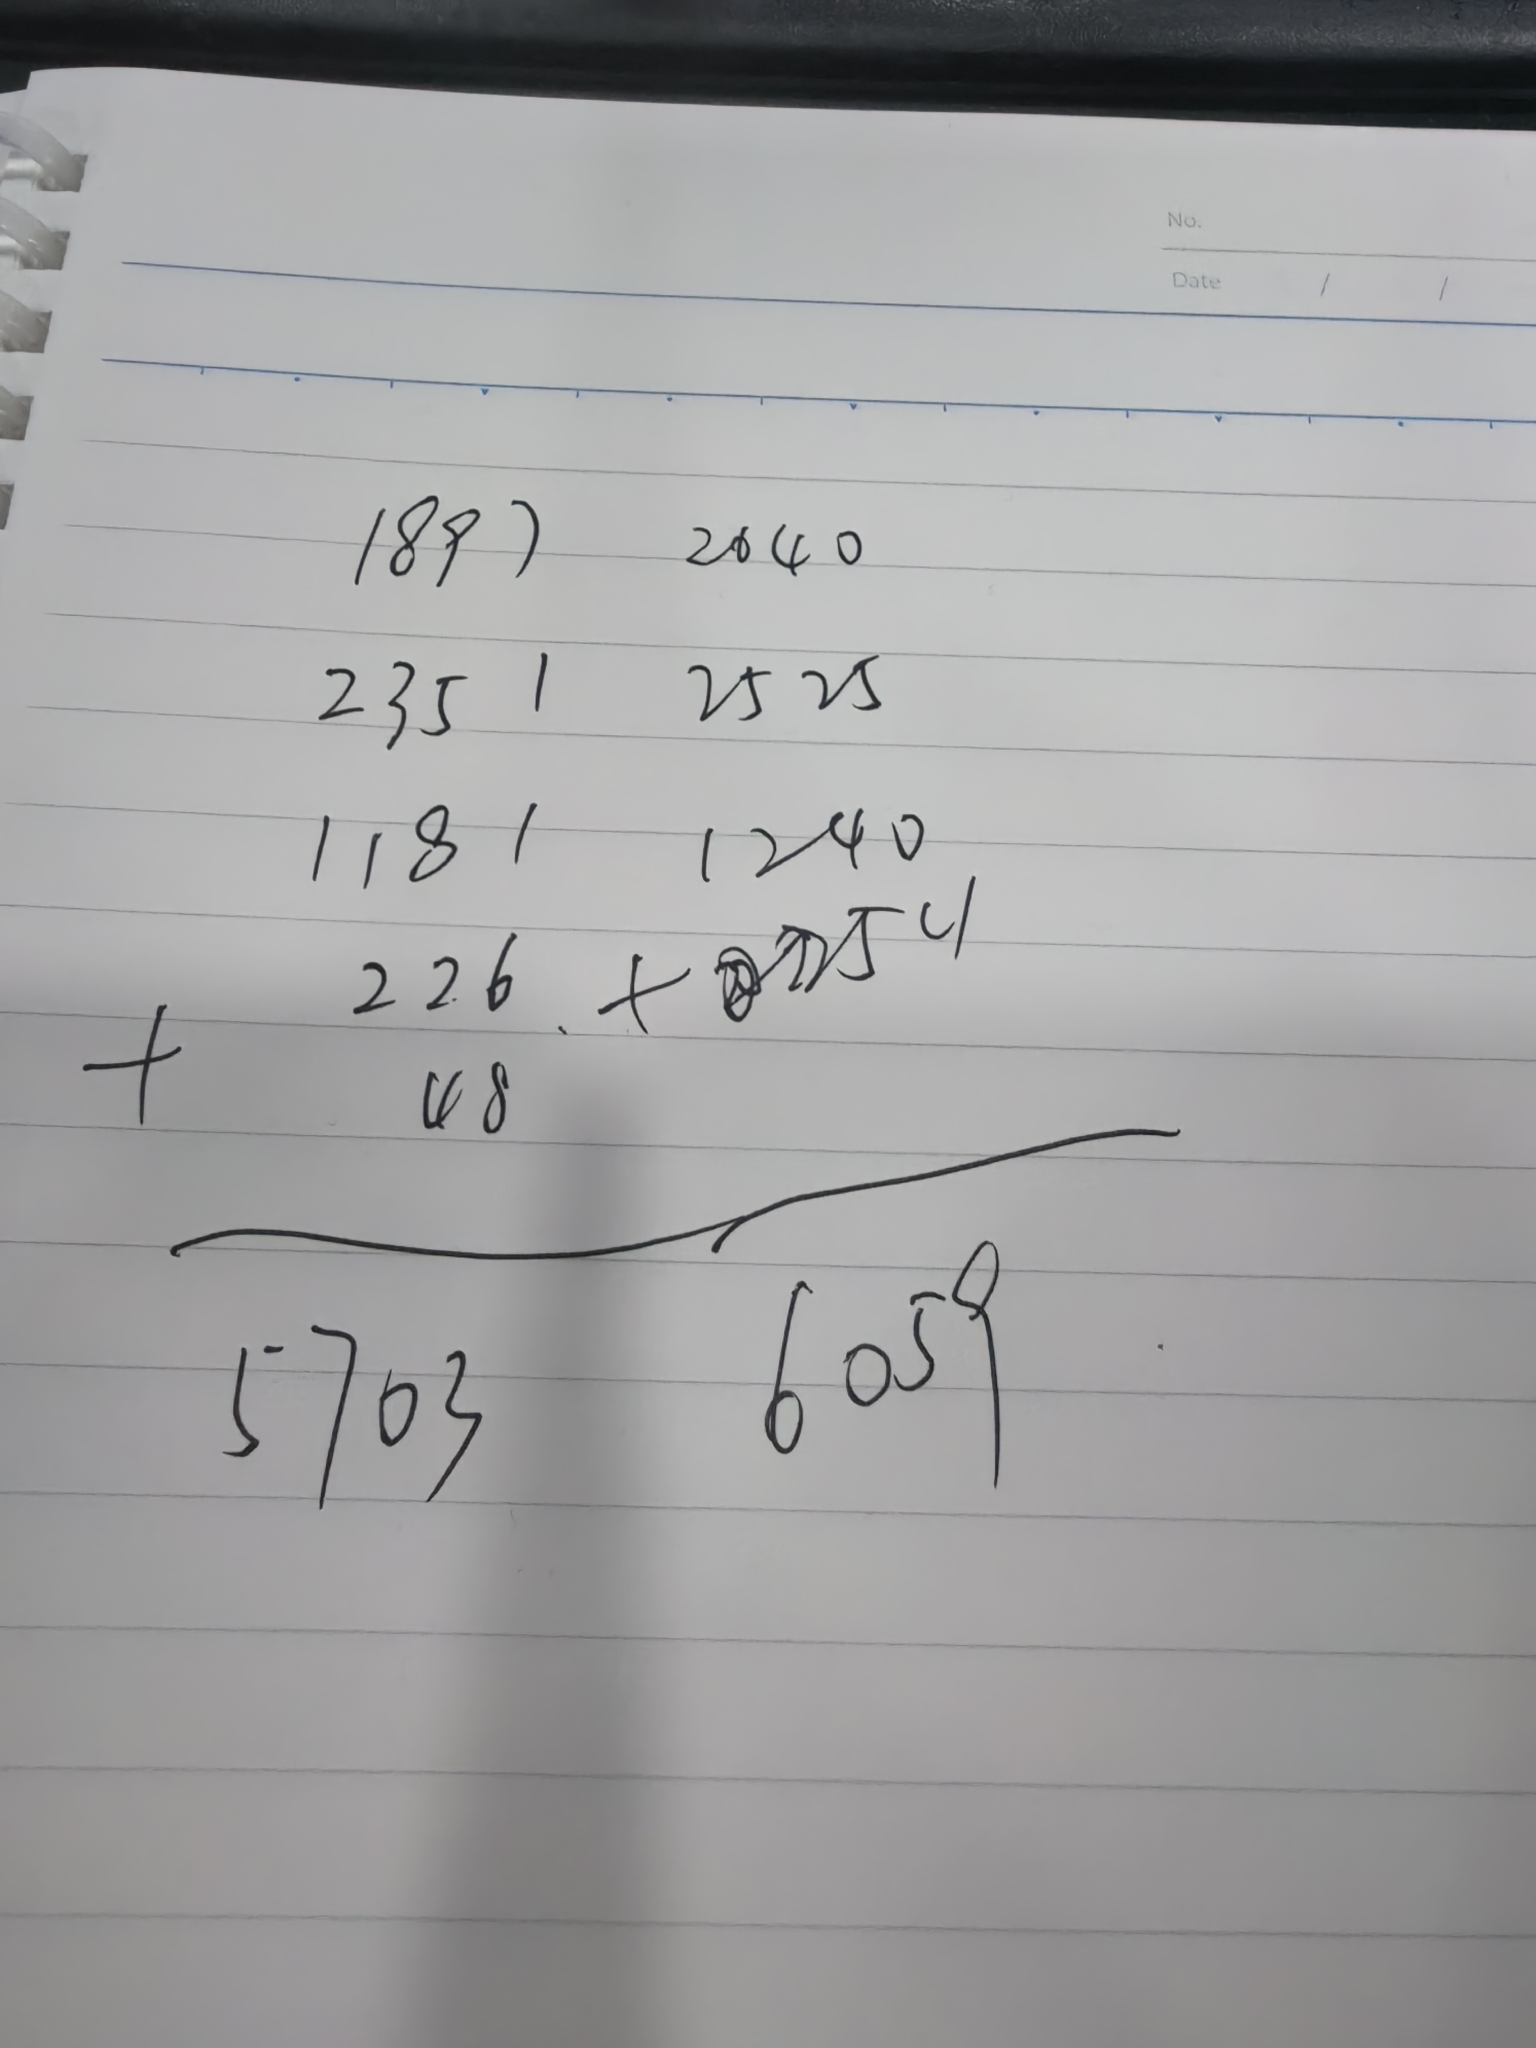 No.
Date / /
1897 2040
2351 2525
1181 1240
226 + 254
+ 48
5703 6059